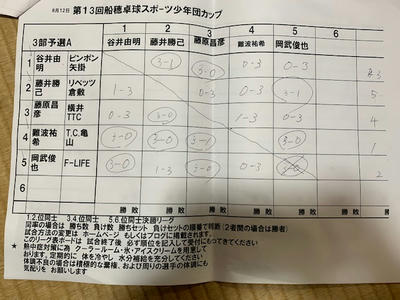 8月12日 第13回船穂卓球スポーツ少年団カップ
1 2 3 4 5
3部予選A 谷井由明 藤井勝己 藤原昌彦 難波祐希 岡武俊也
1 谷井由明 ピンポン矢掛 3-1 3-0 0-3 0-3
2 藤井勝己 リベッツ倉敷 1-3 0-3 3-1 5
3 藤原昌彦 横井TTC 0-3 3-0 0-3 0-3 4
4 難波祐希 T.C.亀山 3-0 3-0 3-1 3-0 1
5 岡武俊也 F-LIFE 3-0 1-3 3-0 0-3 2
6
勝 敗 勝 敗 勝 敗 勝 敗 勝 敗
1,2,位同士 3,4,位同士 5,6,位同士決勝リーグ
同率の場合は 勝ち数 負け数 勝ちセット 負けセットの順番で判断(2者間の場合は勝者)
試合方法の変更は ホームページ もしくはブログに掲載されます。
このリーグ表ボードは 試合終了後 必ず順位を記入して受付にもってきてください
★ 熱中症対策に為 クーラールーム・氷・アイスクリームを用意して
おります、定期的に 体を冷やし 水分補給を充分してください
体調不良の場合は積極的な棄権、および周りの選手の体調にも
気配りを お願いします